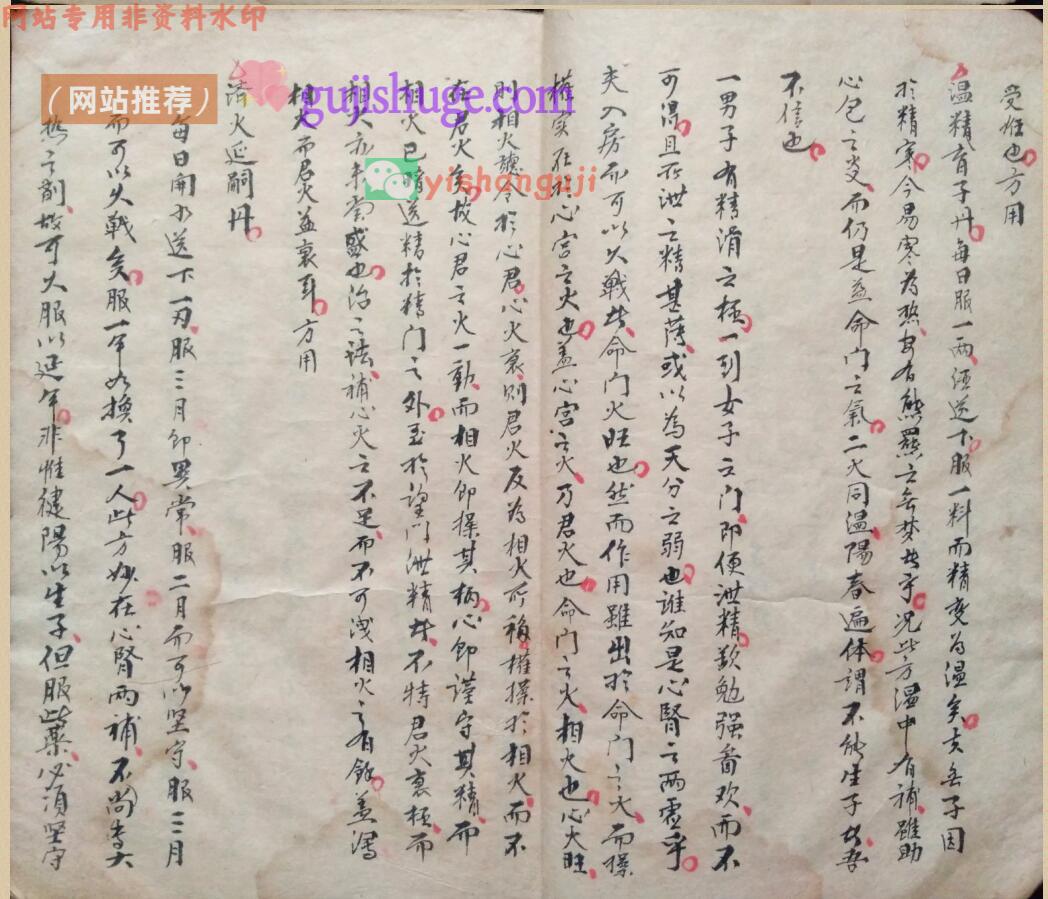 网站专用非资料水印
(网站推荐)
gujishuge.com
yishanguji
受妊也方用
温精育子丹每日服一两酒送下服一料而精变为温矣夫无子因
於精寒今易寒为热安有熊羆之无梦者乎况此方温中有補雖助
心包之炎而仍是益命门之氣二火同温陽春遍体謂不能生子者吾
不信也
一男子有精滑之極一到女子之门即便泄精欲勉强图欢而不
可得且所泄之精甚薄或以为天分之弱也谁知是心腎之两虚乎
夫入房而可以久戰者命门火旺也然而作用雖出於命门之火而操
權实在於心宫之火也盖心宫之火乃君火也命门之火相火也心火旺
则相火聽令於心君心火衰则君火反为相火所移權操於相火而不
在君火矣故心君之火一動而相火即操其柄心即谨守其精而
相火已暗送精於精门之外至於望门泄精者不特君火衰極而
相火亦未尝盛也治之法補心火之不足而不可泄相火之有餘盖瀉
相火而君火益衰耳方用
濟火延嗣丹
每日開水送下一两服一月即異常服二月而可以坚守服三月
而可以久戰矣服一年如換了一人此方妙在心腎两補不尚专大
热之剂故可久服以延年非惟健陽以生子但服此藥必須坚守